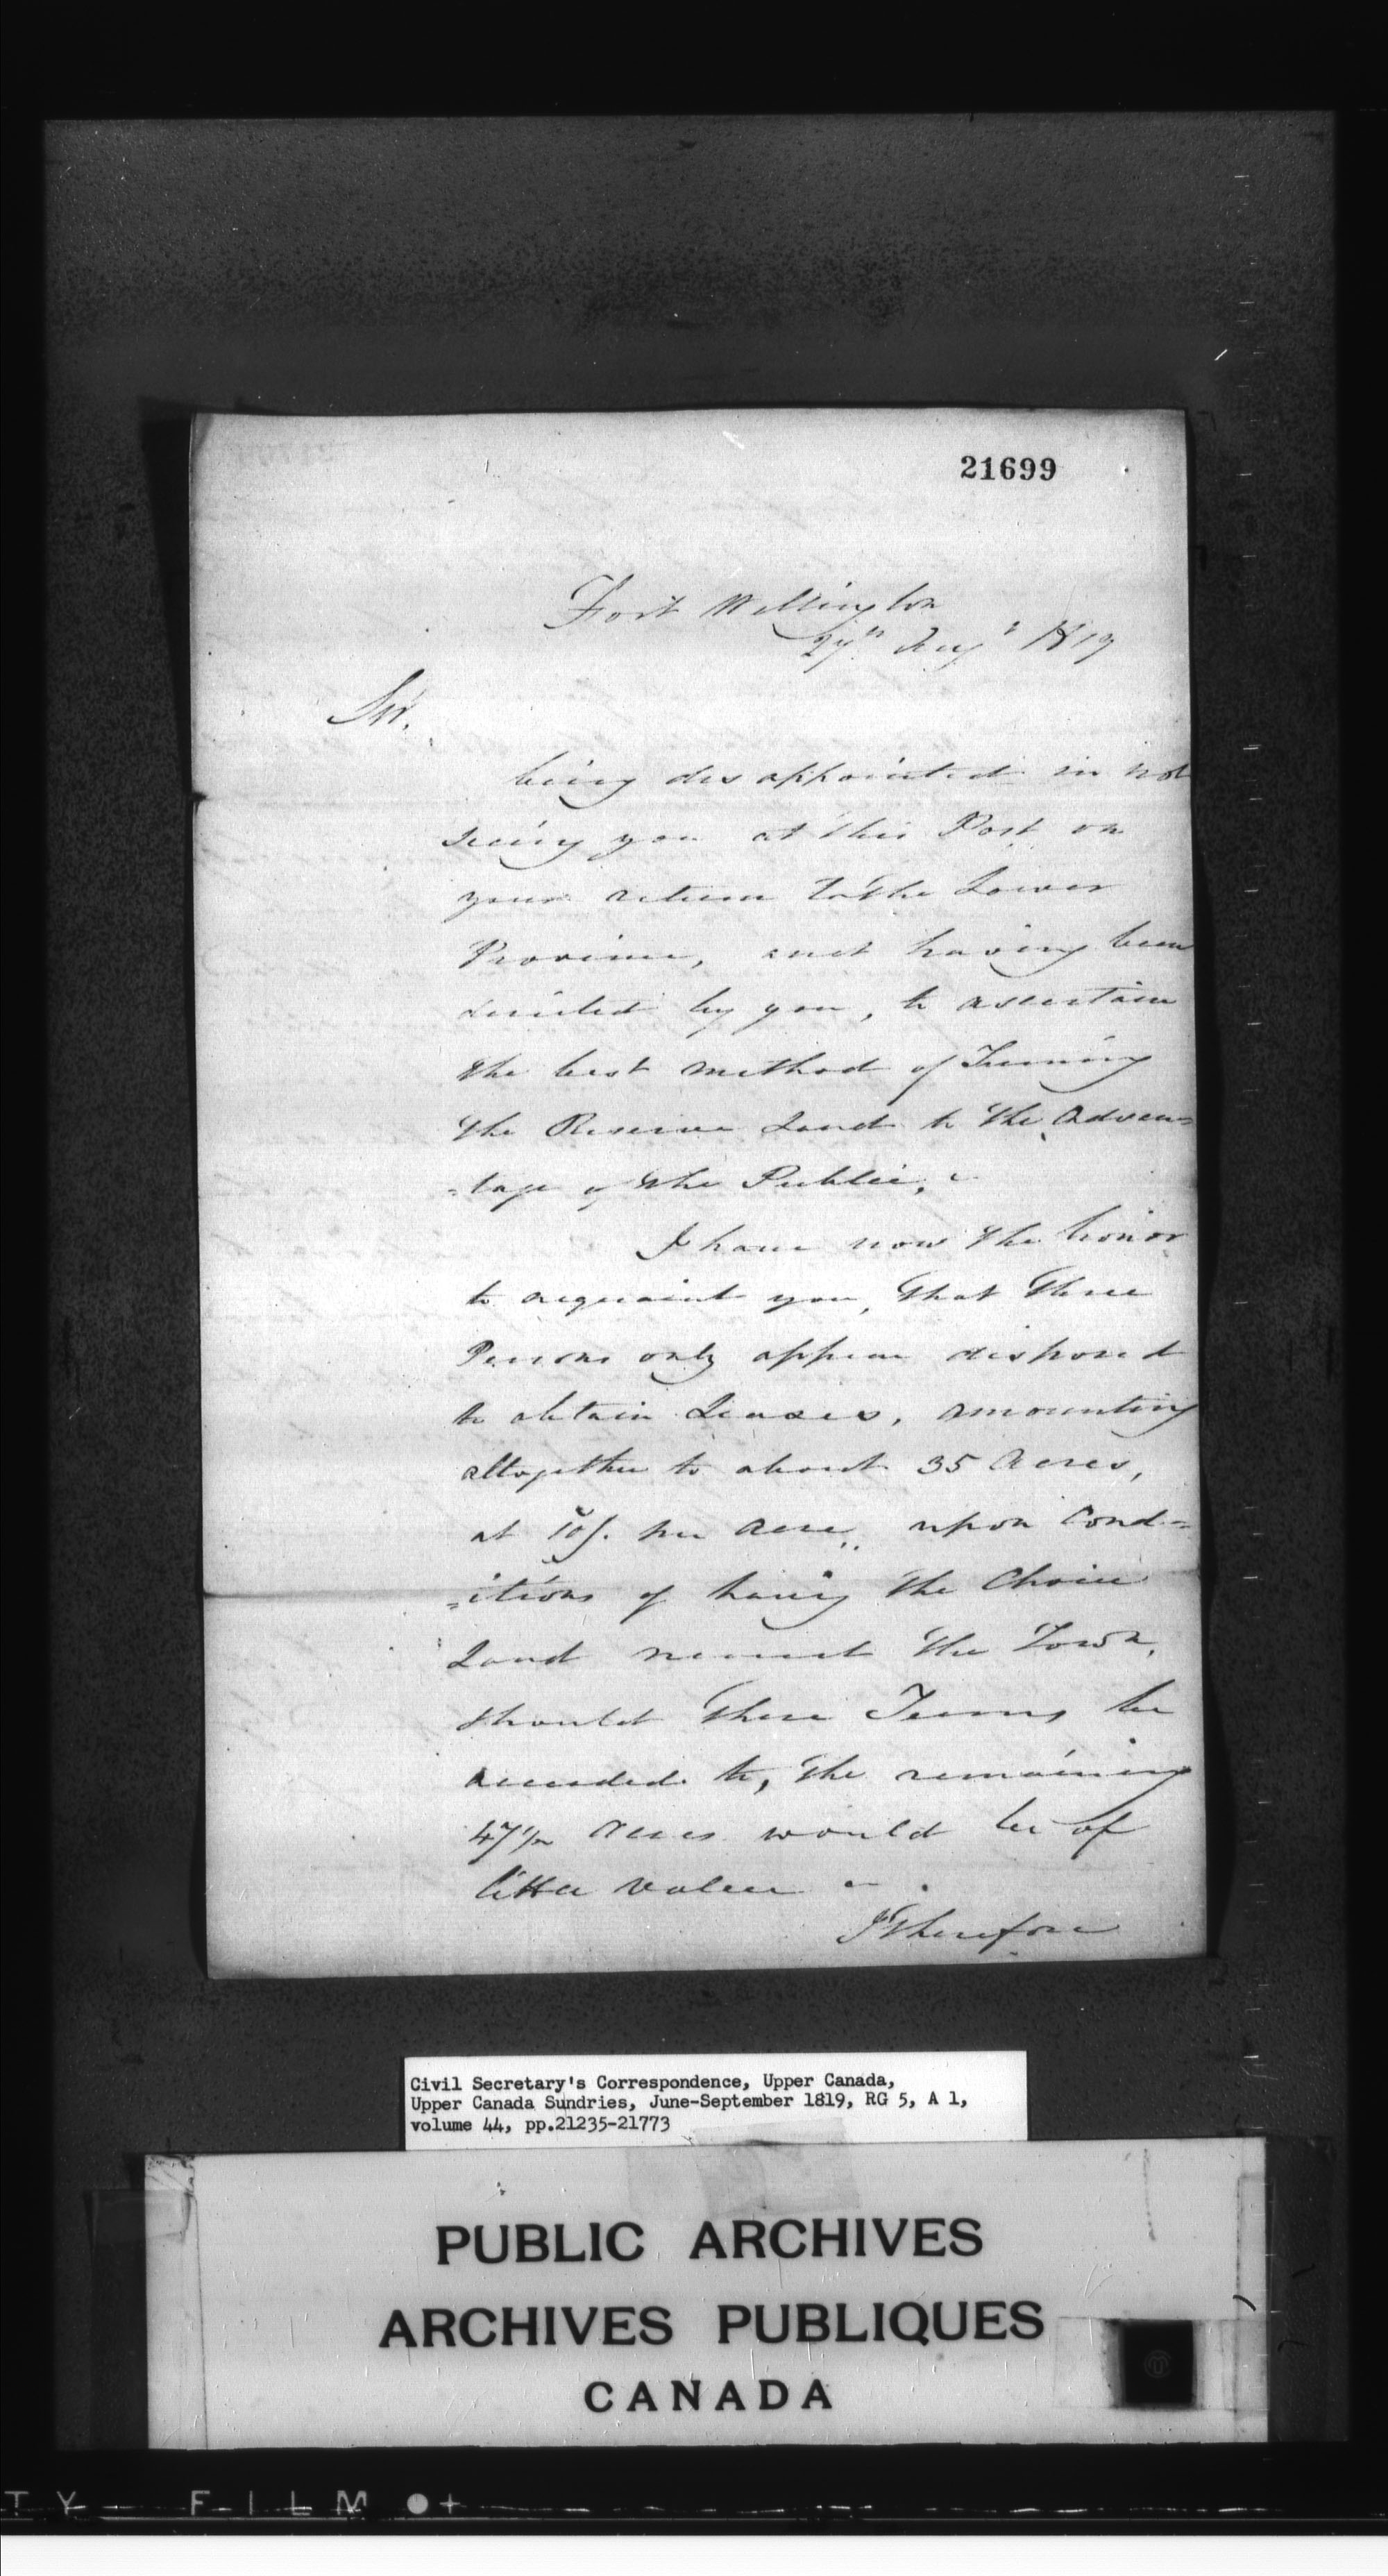 21699
Fort Wellington
27th Augt 1819
Sir,
being disappointed in not
seeing you at this Post on
your return to the Lower
Province, and having been
desired by you, to ascertain
the best method of Turning
the Reserve Land to the Advan=
=tage of the Public,
I have now the honor
to acquaint you, that three
Persons only appear disposed
to obtain Leases, amounting
altogether to about 35 Acres,
at 10/. per Acre, upon Cond=
=itions of having the Choice
Land nearest the Town,
should these Terms be
acceded to, the remaining
47 1/2 Acres would be of
little value
I Therefore
Civil Secretary's Correspondence, Upper Canada,
Upper Canada Sundries, June-September 1819, RG 5, A 1,
volume 44, pp.21235-21773
PUBLIC ARCHIVES
ARCHIVES PUBLIQUES
CANADA
TY FILM